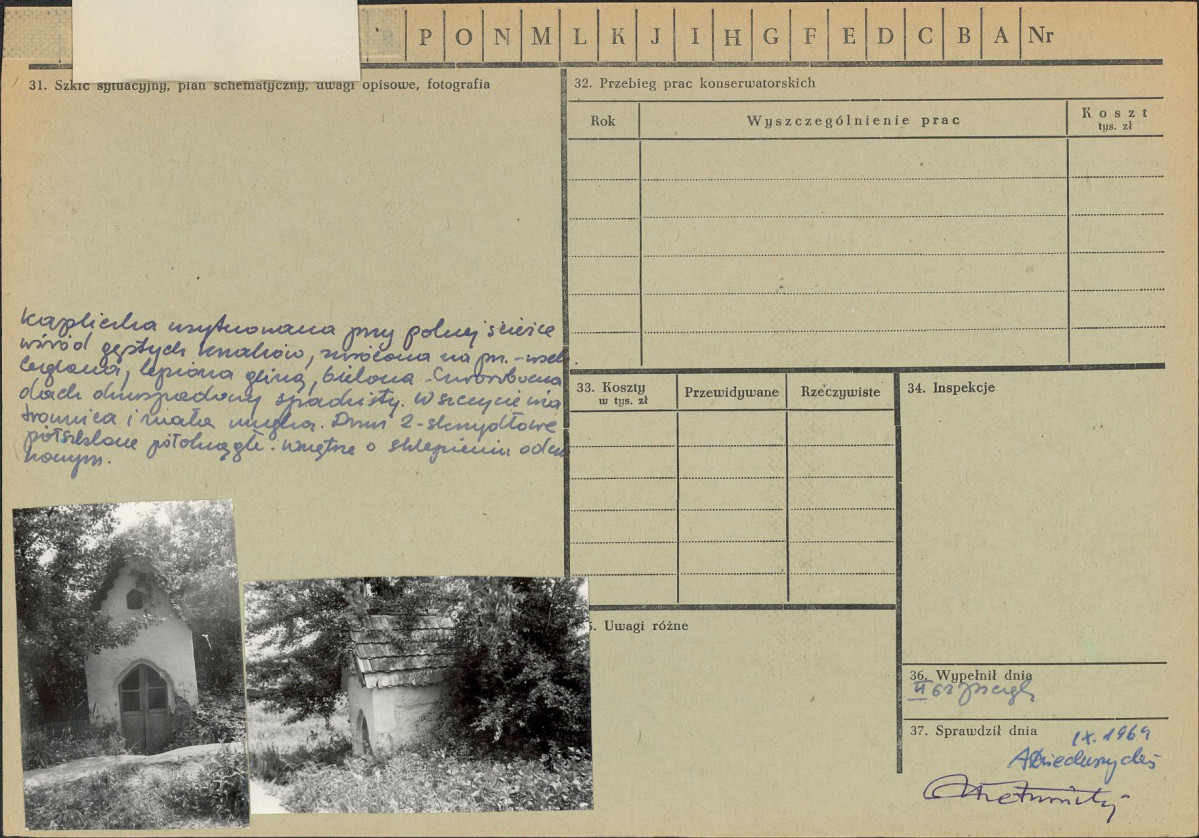 P O N M L K J I H G F E D C B A Nr
31. Szkic sytuacyjny, plan schematyczny, uwagi opisowe, fotografia
Kapliczka usytuowana przy polnej ścieżce
wśród gęstych krzaków, zwrócona na pn.-wsch.
Ceglana, lepiona gliną, bielona. Czworoboczna
dach dwuspadowy spadzisty. W szczycie
i mała wnęka. Drzwi 2-skrzydłowe
półszklone półokrągłe. Wnętrze o sklepieniu
32. Przebieg prac konserwatorskich
Rok Wyszczególnienie prac Koszt
tys. zł
33. Koszty
w tys. zł
Przewidywane Rzeczywiste
34. Inspekcje
Uwagi różne
36. Wypełnił dnia
37. Sprawdził dnia
IX. 1969